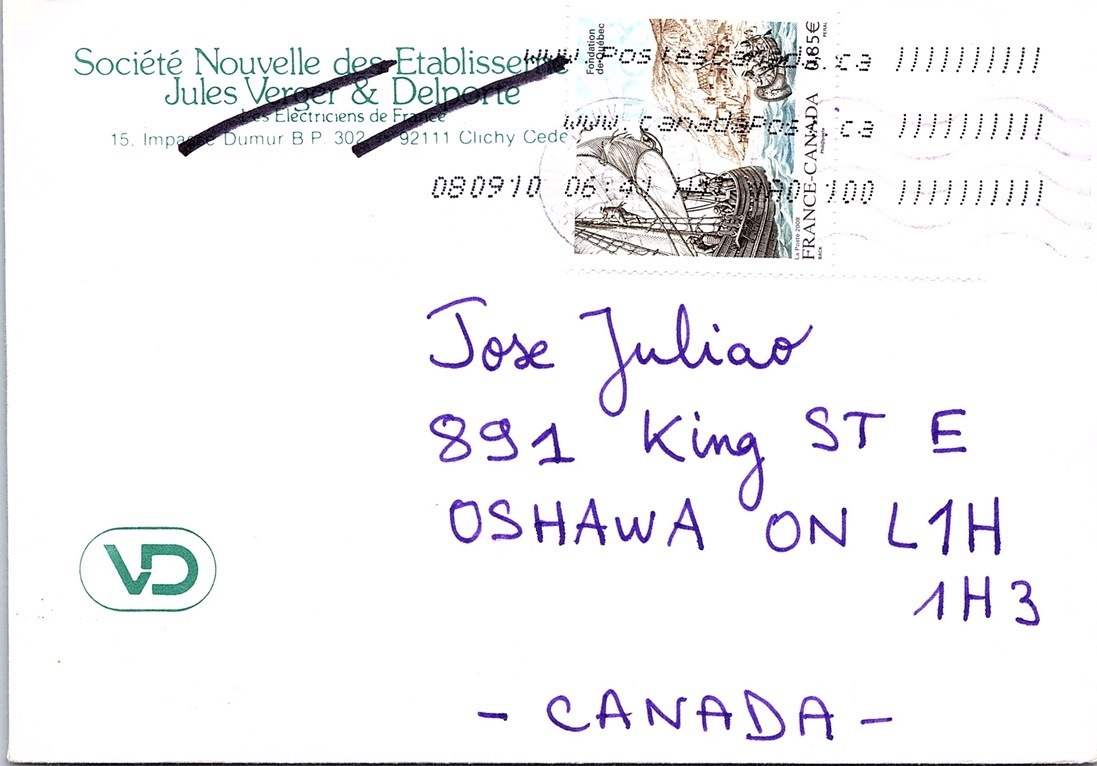 Société Nouvelle des Etablisseme
Jules Verger & Delporte
Les Electriciens de France
15, Impasse Dumur B.P. 302 92111 Clichy Cede
Fondation
de Québec
0,85€
FRANCE-CANADA
La Poste 2008
www.postescanada.ca
www.canadapost.ca
080910 06:41 100
Jose Juliao
891 King ST E
OSHAWA ON L1H
1H3
VD
- CANADA -